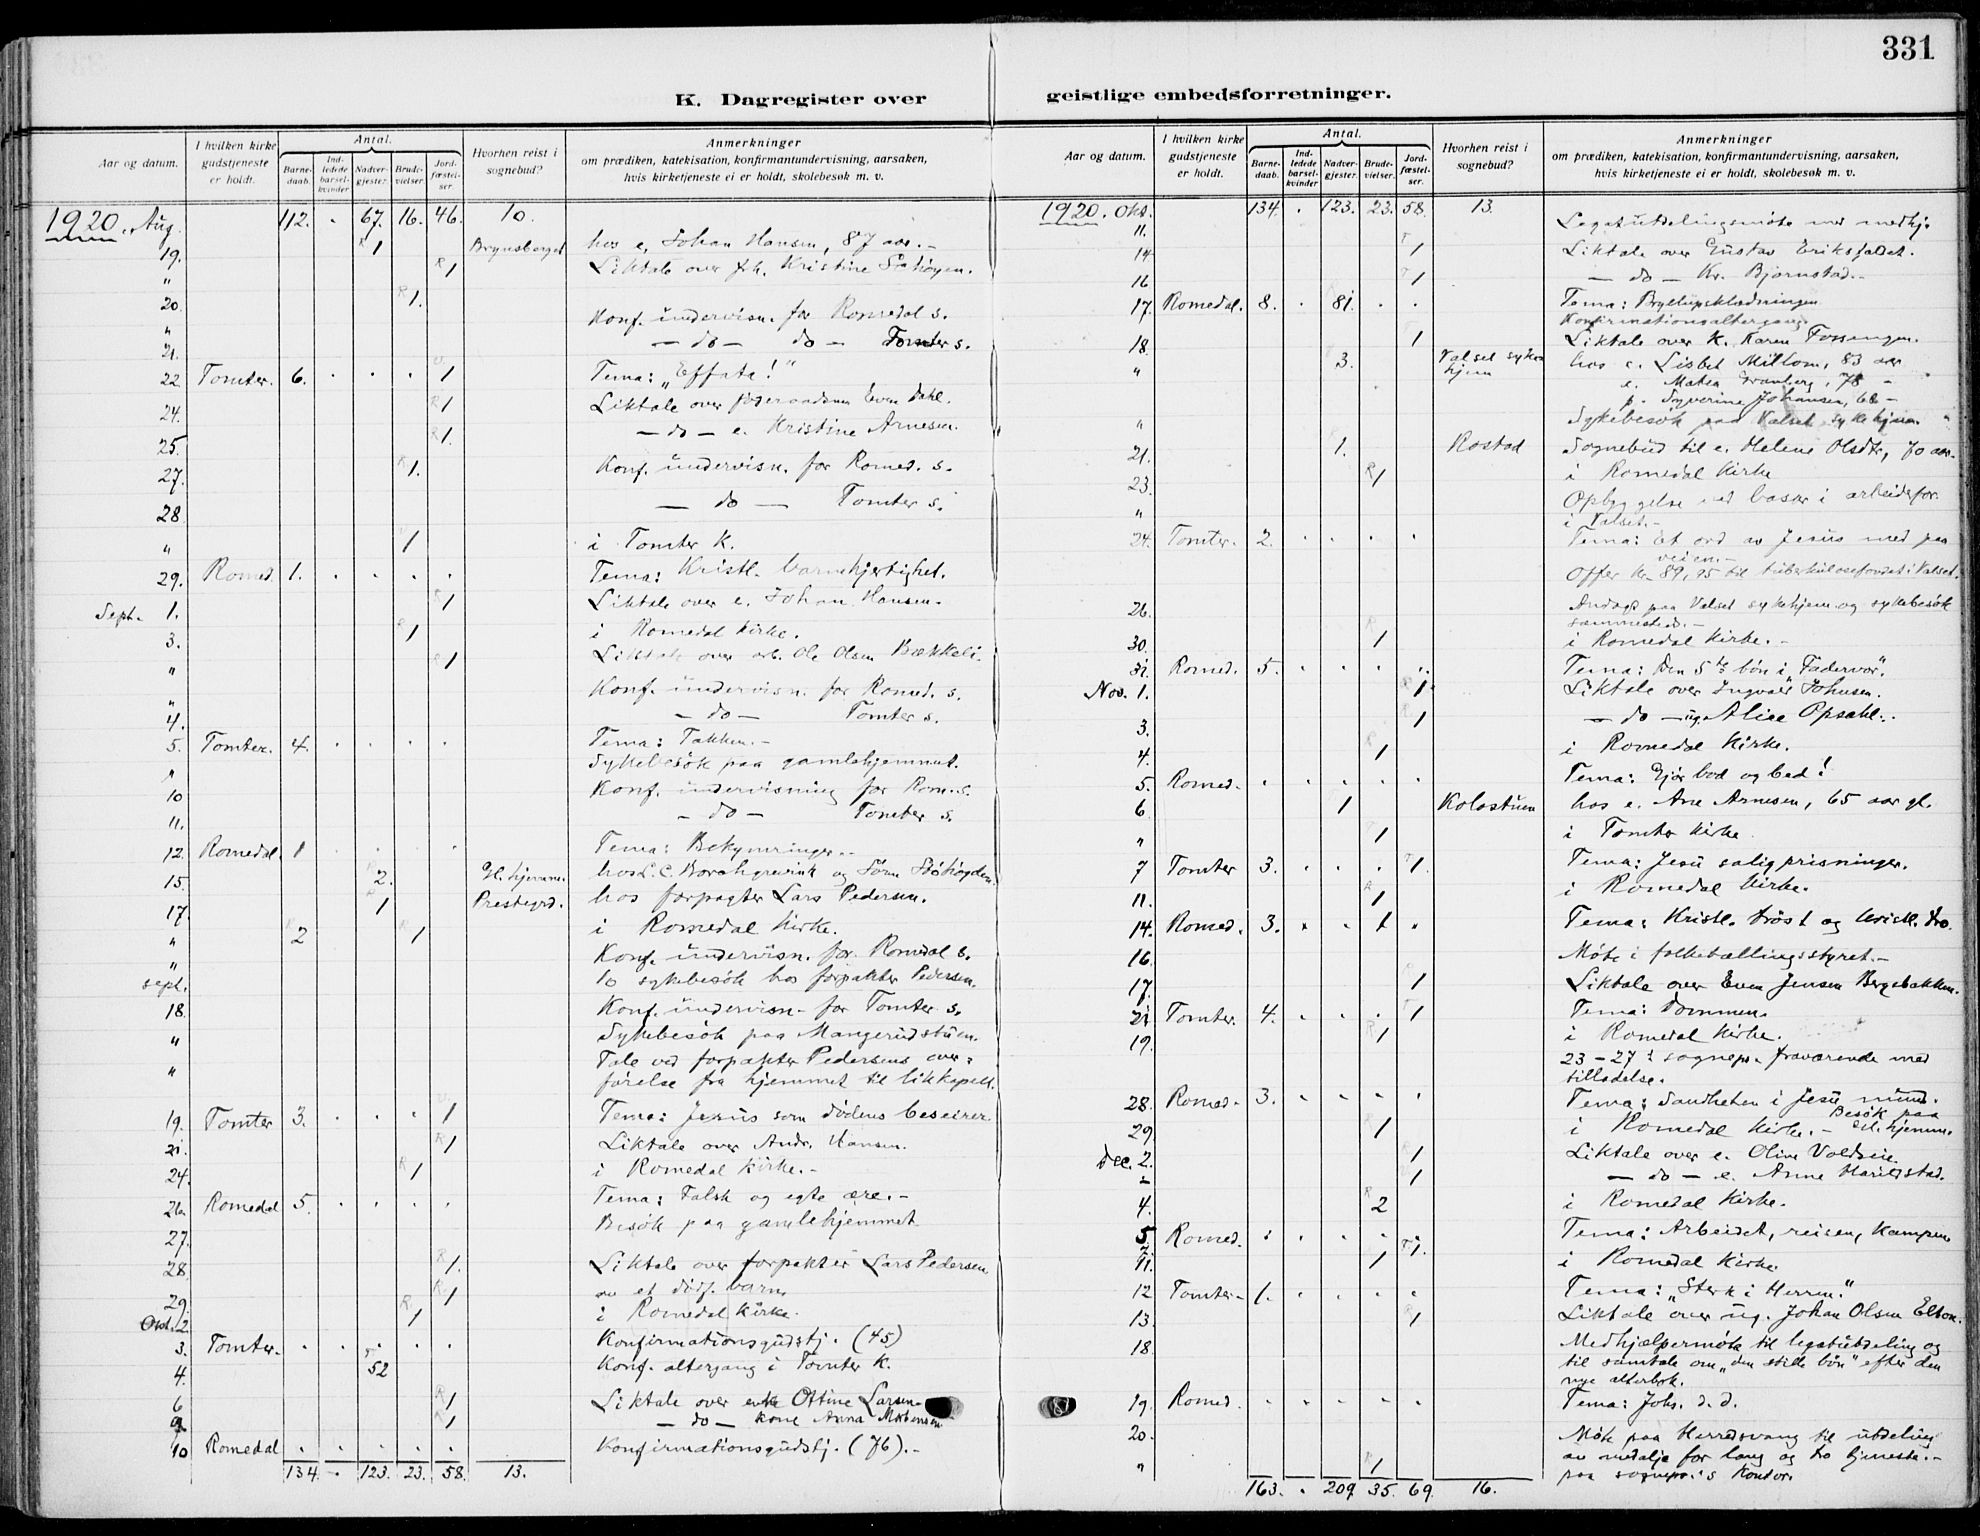 331
K. Dagregister over geistlige embedsforretninger.
Aar og datum. I hvilken kirke gudstjeneste er holdt. Antal. Barnedaab. Indledede barselkvinder Nadvergjester. Brudevielser. Jordfæstelser. Hvorhen reist i sognebud? Anmerkninger
om prædiken, katekisation, konfirmantundervisning, aarsaken,
hvis kirketjeneste ei er holdt, skolebesøk m. v.
1920. Aug. 112. . 67. 16. 46. 10.
19. R 1 hos e. Johan Hansen, 87 aar. -
" R 1 Liktale over fhv. Kristine
20. R 1. Konf. undervisn. for Romedal s.
" - do - do - Tomter s.
21.
22 Tomter. 6. . . . 1 Tema: "Effata!"
24. R 1 Liktale over Even Dahl.
25. R 1. - do - e. Kristine Arnesen.
27. R 1. Konf. undervisn. for Romed. s.
28. - do - Tomter s.
" 1 i Tomter K.
29. Romed. 1. . . . . Tema: Kristl. barmhjertighet.
Sept. 1. R 1 Liktale over e. Johan Hansen.
3. R 1 i Romedal Kirke.
" 1 Liktale over arb. Ole Olsen Bækkeli.
" Konf. undervisn. for Romed. s.
4. - do - Tomter s.
5. Tomter. 4. . . . . Tema: Takken. -
" Sykebesøk paa gamlehjemmet.
10 Konf. undervisning for Rom. s.
11. - do - Tomter s.
12. Romedal. 1 . . . . Tema: Bekymringer. -
15. R 2. Gl. hjemm.
17. R 1 Prestegrd. hos forpagter Lars Pedersen.
" R 2 R 1 i Romedal Kirke.
" Konf. undervisn. for Romedal s.
sept. 10 sykebesøk hos forpakter Pedersen.
18. Konf. undervisn. for Tomter s.
" Sykebesøk paa Mangerudstuen.
" Tale ved forpakter Pedersens over-
førelse fra hjemmet til likkapell.
19. Tomter 3. . . . 1 Tema: Jesus som dødens beseirer
21. R 1 Liktale over Andr. Hansen.
24. R 1 i Romedal Kirke. -
26. Romedal 5. . . . . Tema: Falsk og egte ære. -
27. Besøk paa gamlehjemmet
28 R 1. Liktale over forpakter Lars Pedersen
29. R 1 av et dødf. barn.
Okt. 2 R 1 i Romedal Kirke.
3. Tomter. . . . . . Konfirmationsgudstj. (45)
4. T 52 Konf. altergang i Tomter K.
6 R 1 Liktale over enke Ottine Larsen
9 R 1 - do - kone Anna Mortensen
10 Romedal . . . . . Konfirmationsgudstj. (76). -
134. - . 123. 23. 58. 13.
Aar og datum. I hvilken kirke gudstjeneste er holdt. Antal. Barnedaab. Indledede barselkvinder Nadvergjester. Brudevielser. Jordfæstelser. Hvorhen reist i sognebud? Anmerkninger
om prædiken, katekisation, konfirmantundervisning, aarsaken,
hvis kirketjeneste ei er holdt, skolebesøk m. v.
1920. Okt. 134. . 123. 23. 58. 13.
11. Legatutdelingsmøte med medhj.
14 T 1 Liktale over Gustav Eriksfallet.
16 T 1 - do - Kr. Bjørnstad. -
17. Romedal. 8. . 81. . . Tema: Bryllupsklædningen
Konfirmationsaltergang.
18. 1 Liktale over K. Karen
" 3. Valset sykehjem hos e. Lisbet Millom, 83 aar
e. Mathea Granberg, 78 - "
p. Syverine Johansen, 68 -
" Sykebesøk paa Valset sykehjem. "
21. 1. Rostad Sognebud til e. Helene Olsdtr, 70 aar.
23. R 1 i Romedal Kirke
" Opbyggelse ved basar i arbeiderfor.
i Valset. -
24. Tomter. 2. . . . . Tema: Et ord av Jesus med paa
veien. -
Offer Kr. 89,95 til tuberkulosefondet i Valset.
26. Andagt paa Valset sykehjem og sykebesøk
sammesteds. -
30. R 1 i Romedal Kirke. -
31. Romed. 5. . . . . Tema: Den 5te bøn i "Fadervor".
Nov. 1. R 1. Liktale over Ingvald Johnsen.
3. R 1 - do - ug. Alice Opsahl. -
4. R 1 i Romedal Kirke.
5. Romed. . . . . . Tema: Gjør bod og bed!
6 1 Kolostuen hos e. Ane Arnesen, 65 aar gl.
" T 1 i Tomter Kirke
7 Tomter 3. . . . T 1. Tema: Jesu saligprisninger.
11. R 1 i Romedal Kirke.
14. Romed. 3. . . 1 . Tema: Kristl. trøst og kristl. tro.
16. Møte i folketællingsstyret. -
17. R 1 Liktale over Even Jensen Bergsbakken.
21 Tomter. 4. . . . T 1 Tema: Dommen.
19. R 1 i Romedal Kirke.
23 - 27: sognepr. fraværende med
tilladelse.
28. Romed. 3. . . . . Tema: Sandheten i Jesu mund.
29. R 1 i Romedal Kirke. - Besøk paa
Gl. hjemm.
Dec. 2. R 1 Liktale over e. Oline
- 1 - do - e. Anne
4. R 2 i Romedal Kirke.
5. Romed. . . . . T 1. Tema: Arbeidet, reisen, kampen
11. 1 i Romedal Kirke
12 Tomter - 1. . . . . Tema: "Sterk i Herren."
13. R 1 Liktale over ug. Johan Olsen Elton.
18. Medhjælpermøte til legatutdeling og
til samtale om "den stille bøn" efter den
nye alterbok.
19. Romed. . . . . . Tema: Johs. d. d.
20. Møte paa Herredsvang til utdeling
av medalje for lang og tro tjeneste. -
" R 1 paa sognepr.'s Kontor.
163. . 209 35. 69. 16.